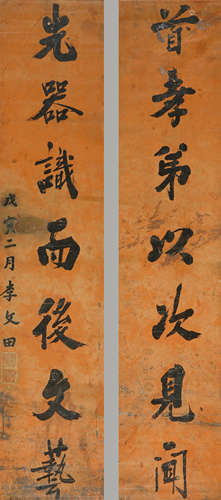 首孝弟以次見聞
先器識而後文藝
戊寅二月李文田